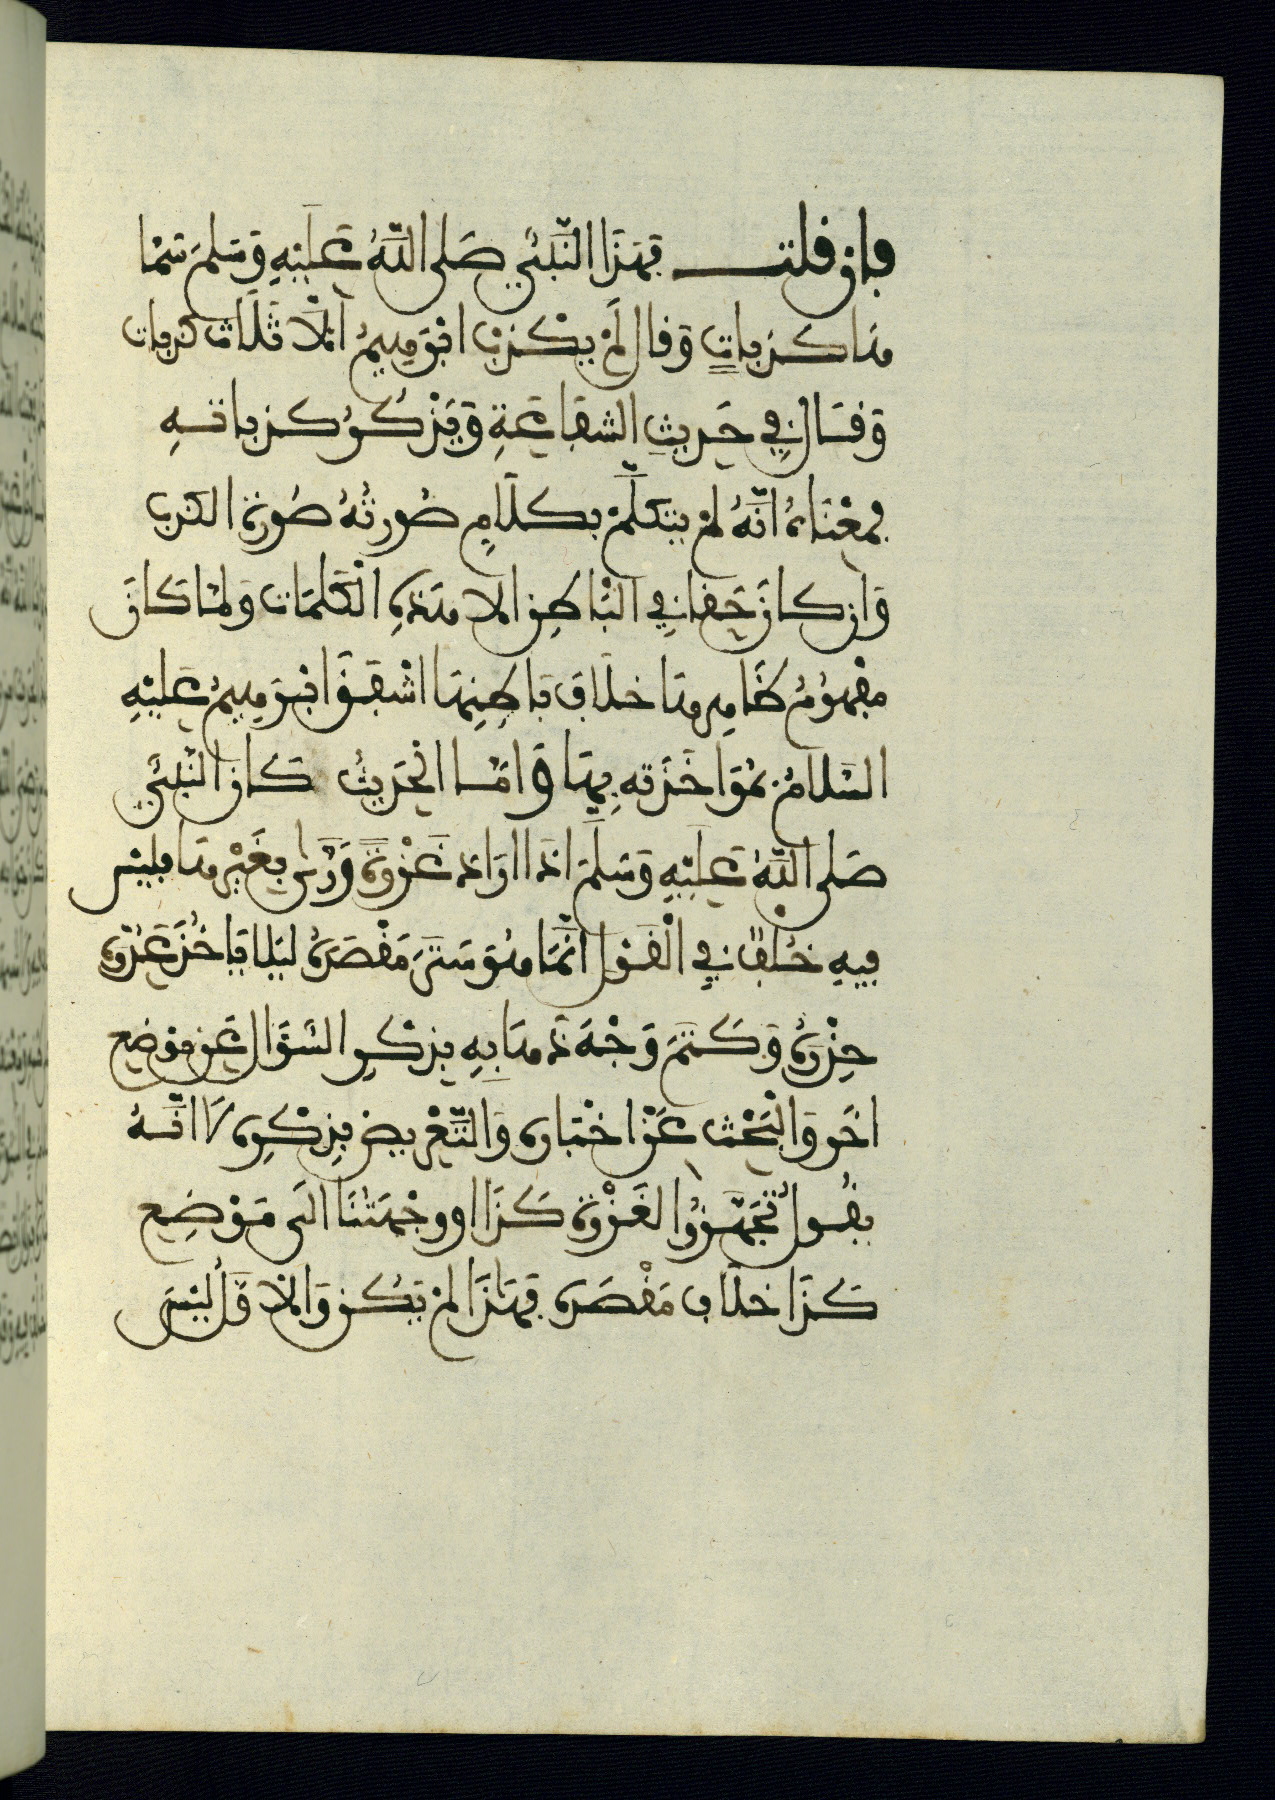 فإن قلت فهذا النبي صلى الله عليه وسلم سما
ها كذبات وقال لم يكذب ابرهيم الا ثلاث كذبات
وقال في حديث الشفاعة ويذكر كذباته
فمعناه انه لم يتكلم بكلام صورته صورة الكذب
وان كان حقا في الباطن الا هذه الكلمات ولما كان
مفهوم ظاهرها خلاف باطنها اشفق ابرهيم عليه
السلام بمواخذته بها واما الحديث كان النبي
صلى الله عليه وسلم اذا اراد غزوة ورى بغيرها فليس
فيه خلف في القول انما هو ستر مقصده ليلا ياخذ عدوه
حذره وكتم وجه ذهابه بذكر السؤال عن موضع
اخر والبحث عن اخباره والتعريض بذكره لا انه
يقول تجهزوا لغزوة كذا او وجهتنا الى موضع
كذا خلاف مقصده فهذا لم يكن والاول ليس